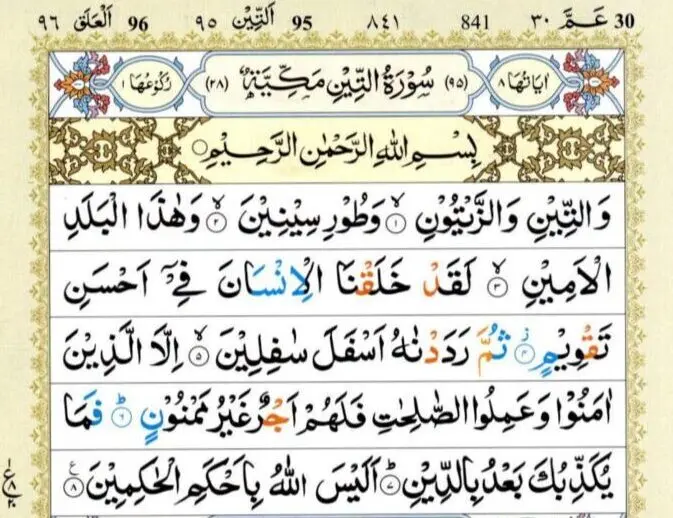 30 عَمَّ ٣٠ 841 ٨٤١ 95 اَلتِّيْن ٩٥ 96 اَلْعَلَق ٩٦
اٰيَاتُهَا ٨ (٩٥) سُوْرَةُ التِّيْنِ مَكِّيَّةٌ (٢٨) رُكُوْعُهَا ١
بِسْمِ اللّٰهِ الرَّحْمٰنِ الرَّحِيْمِ
وَالتِّيْنِ وَالزَّيْتُوْنِ ۙ‏﴿۱﴾ وَطُوْرِ سِيْنِيْنَ ۙ‏﴿۲﴾ وَهٰذَا الْبَلَدِ
الْاَمِيْنِ ۙ‏﴿۳﴾ لَقَدْ خَلَقْنَا الْاِنْسَانَ فِيْۤ اَحْسَنِ
تَقْوِيْمٍ ‏﴿۴﴾ ثُمَّ رَدَدْنٰهُ اَسْفَلَ سٰفِلِيْنَ ۙ‏﴿۵﴾ اِلَّا الَّذِيْنَ
اٰمَنُوْا وَعَمِلُوا الصّٰلِحٰتِ فَلَهُمْ اَجْرٌ غَيْرُ مَمْنُوْنٍ ؕ‏﴿۶﴾ فَمَا
يُكَذِّبُكَ بَعْدُ بِالدِّيْنِ ؕ‏﴿۷﴾ اَلَيْسَ اللّٰهُ بِاَحْكَمِ الْحٰكِمِيْنَ ‏﴿۸﴾